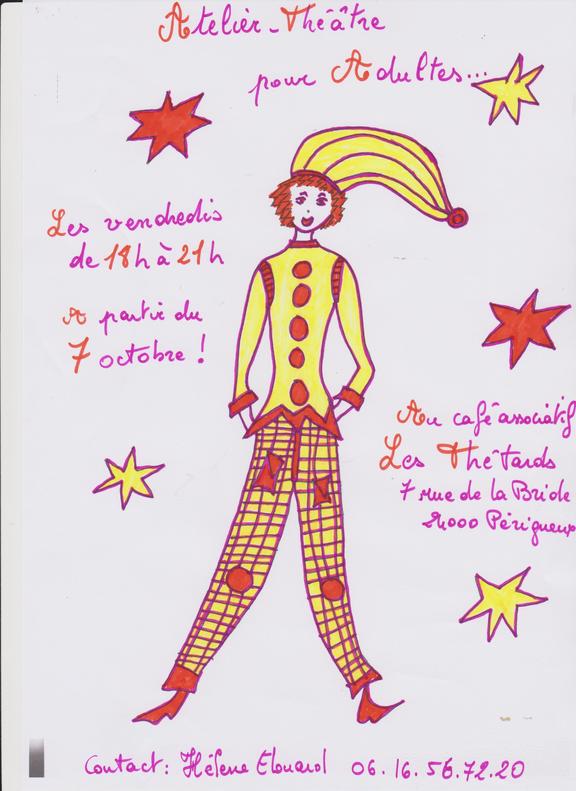 Atelier-Théâtre
pour Adultes...
Les vendredis
de 18h à 21h
A partir du
7 octobre !
Au café associatif
Les Thé'Tards
7 rue de la Bride
24000 Périgueux
Contact : Hélène Elouard 06.16.56.72.20